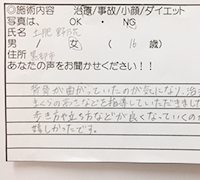 ◎施術内容 治療/事故/小顔/ダイエット
写真は、 OK ・ NG
氏名
男 / 女 ( 16 歳)
住所
あなたの声をお聞かせください!
背骨が曲がっていたのが気になり、治
まくらの高さなどを指導していただきまし
歩き方や立ち方などが良くなっていくの
嬉しかったです。